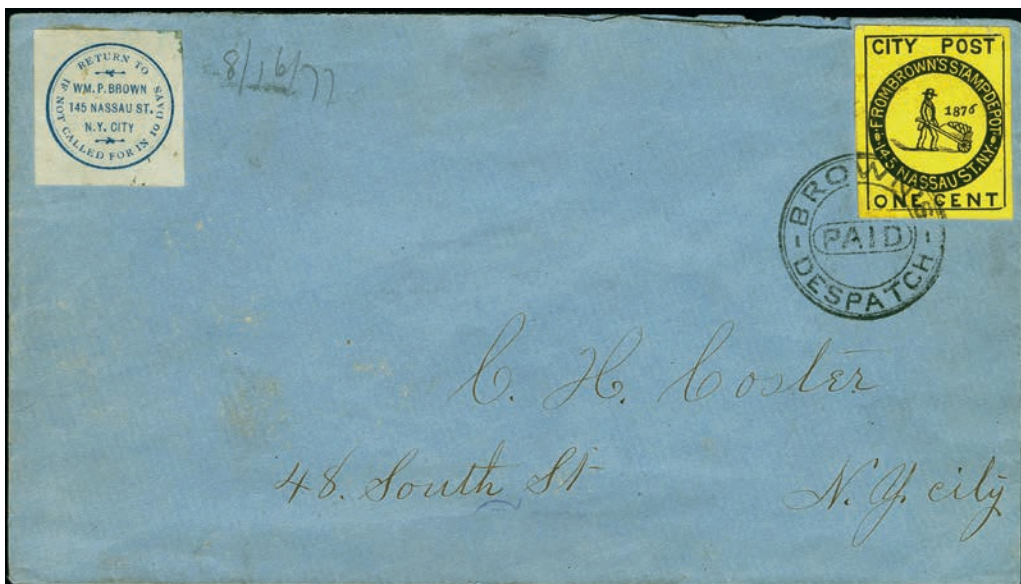 RETURN TO
WM. P. BROWN
145 NASSAU ST.
N.Y. CITY
IF NOT CALLED FOR IN 10 DAYS
8/16/77
CITY POST
FROM BROWN'S STAMP DEPOT
1876
145 NASSAU ST. N.Y.
ONE CENT
BROWN'S
PAID
DESPATCH
C. H. Coster
48. South St
N. Y. city